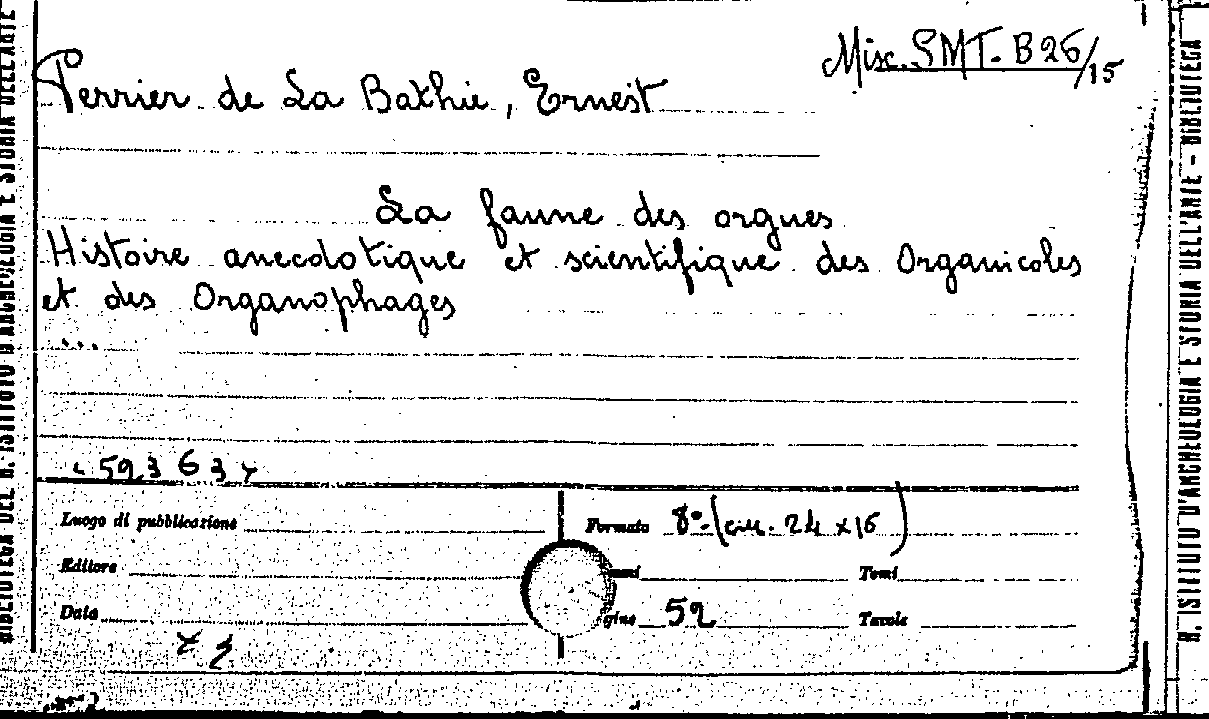 Misc. SMT. B 26/15
Perrier de La Bathie, Ernest
La faune des orgues
Histoire anecdotique et scientifique des Organicoles
et des Organophages
...
59363
Luogo di pubblicazione
Formato 8°. (cm. 24 x 16)
Editore
Tomi
Data
gine 52
Tavole
BIBLIOTECA DEL R. ISTITUTO D'ARCHEOLOGIA E STORIA DELL'ARTE
R. ISTITUTO D'ARCHEOLOGIA E STORIA DELL'ARTE - BIBLIOTECA